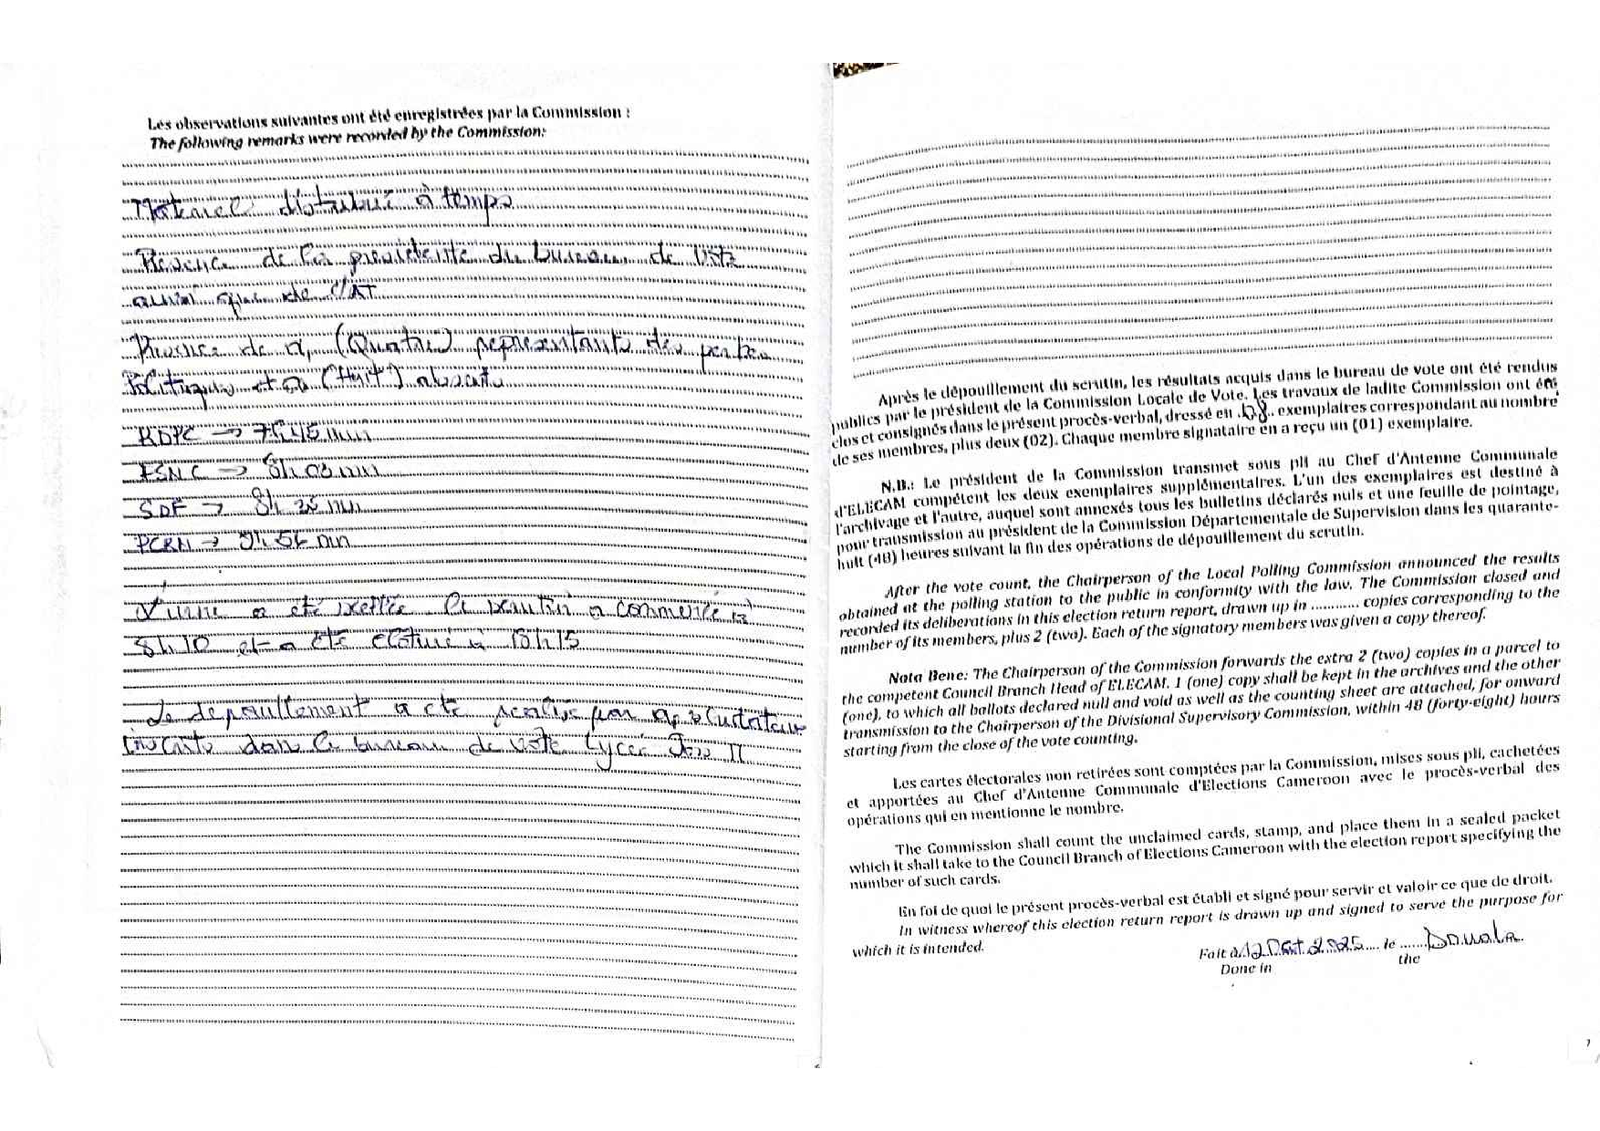 Les observations suivantes ont été enregistrées par la Commission :
The following remarks were recorded by the Commission:
Materiel distribué à temps
Présence de la présidente du bureau de vote
ainsi que de l'AT
Présence de 4 (Quatre) représentants des partis
Politiques et 8 (Huit) absents
RDPC → 7h45 min
FSNC → 8h 03 min
SDF → 8h 35 min
PCRN → 9h 56 min
L'urne a été scellée le scrutin a commencé à
8h10 et a été cloturé à 18h15
Le depouillement a été réalisé par scrutateurs
inscrits dans le bureau de vote Lycée Joss II
Après le dépouillement du scrutin, les résultats acquis dans le bureau de vote ont été rendus
publics par le président de la Commission Locale de Vote. Les travaux de ladite Commission ont été
clos et consignés dans le présent procès-verbal, dressé en exemplaires correspondant au nombre
de ses membres, plus deux (02). Chaque membre signataire en a reçu un (01) exemplaire.
N.B.: Le président de la Commission transmet sous pli au Chef d'Antenne Communale
d'ELECAM compétent les deux exemplaires supplémentaires. L'un des exemplaires est destiné à
l'archivage et l'autre, auquel sont annexés tous les bulletins déclarés nuls et une feuille de pointage,
pour transmission au président de la Commission Départementale de Supervision dans les quarante-
huit (48) heures suivant la fin des opérations de dépouillement du scrutin.
After the vote count, the Chairperson of the Local Polling Commission announced the results
obtained at the polling station to the public in conformity with the law. The Commission closed and
recorded its deliberations in this election return report, drawn up in ........... copies corresponding to the
number of its members, plus 2 (two). Each of the signatory members was given a copy thereof.
Nota Bene: The Chairperson of the Commission forwards the extra 2 (two) copies in a parcel to
the competent Council Branch Head of ELECAM. 1 (one) copy shall be kept in the archives and the other
(one), to which all ballots declared null and void as well as the counting sheet are attached, for onward
transmission to the Chairperson of the Divisional Supervisory Commission, within 48 (forty-eight) hours
starting from the close of the vote counting.
Les cartes électorales non retirées sont comptées par la Commission, mises sous pli, cachetées
et apportées au Chef d'Antenne Communale d'Elections Cameroon avec le procès-verbal des
opérations qui en mentionne le nombre.
The Commission shall count the unclaimed cards, stamp, and place them in a sealed packet
which it shall take to the Council Branch of Elections Cameroon with the election report specifying the
number of such cards.
En foi de quoi le présent procès-verbal est établi et signé pour servir et valoir ce que de droit.
In witness whereof this election return report is drawn up and signed to serve the purpose for
which it is intended.
Fait à 12 Oct 2025 le Douala
Done in the
7